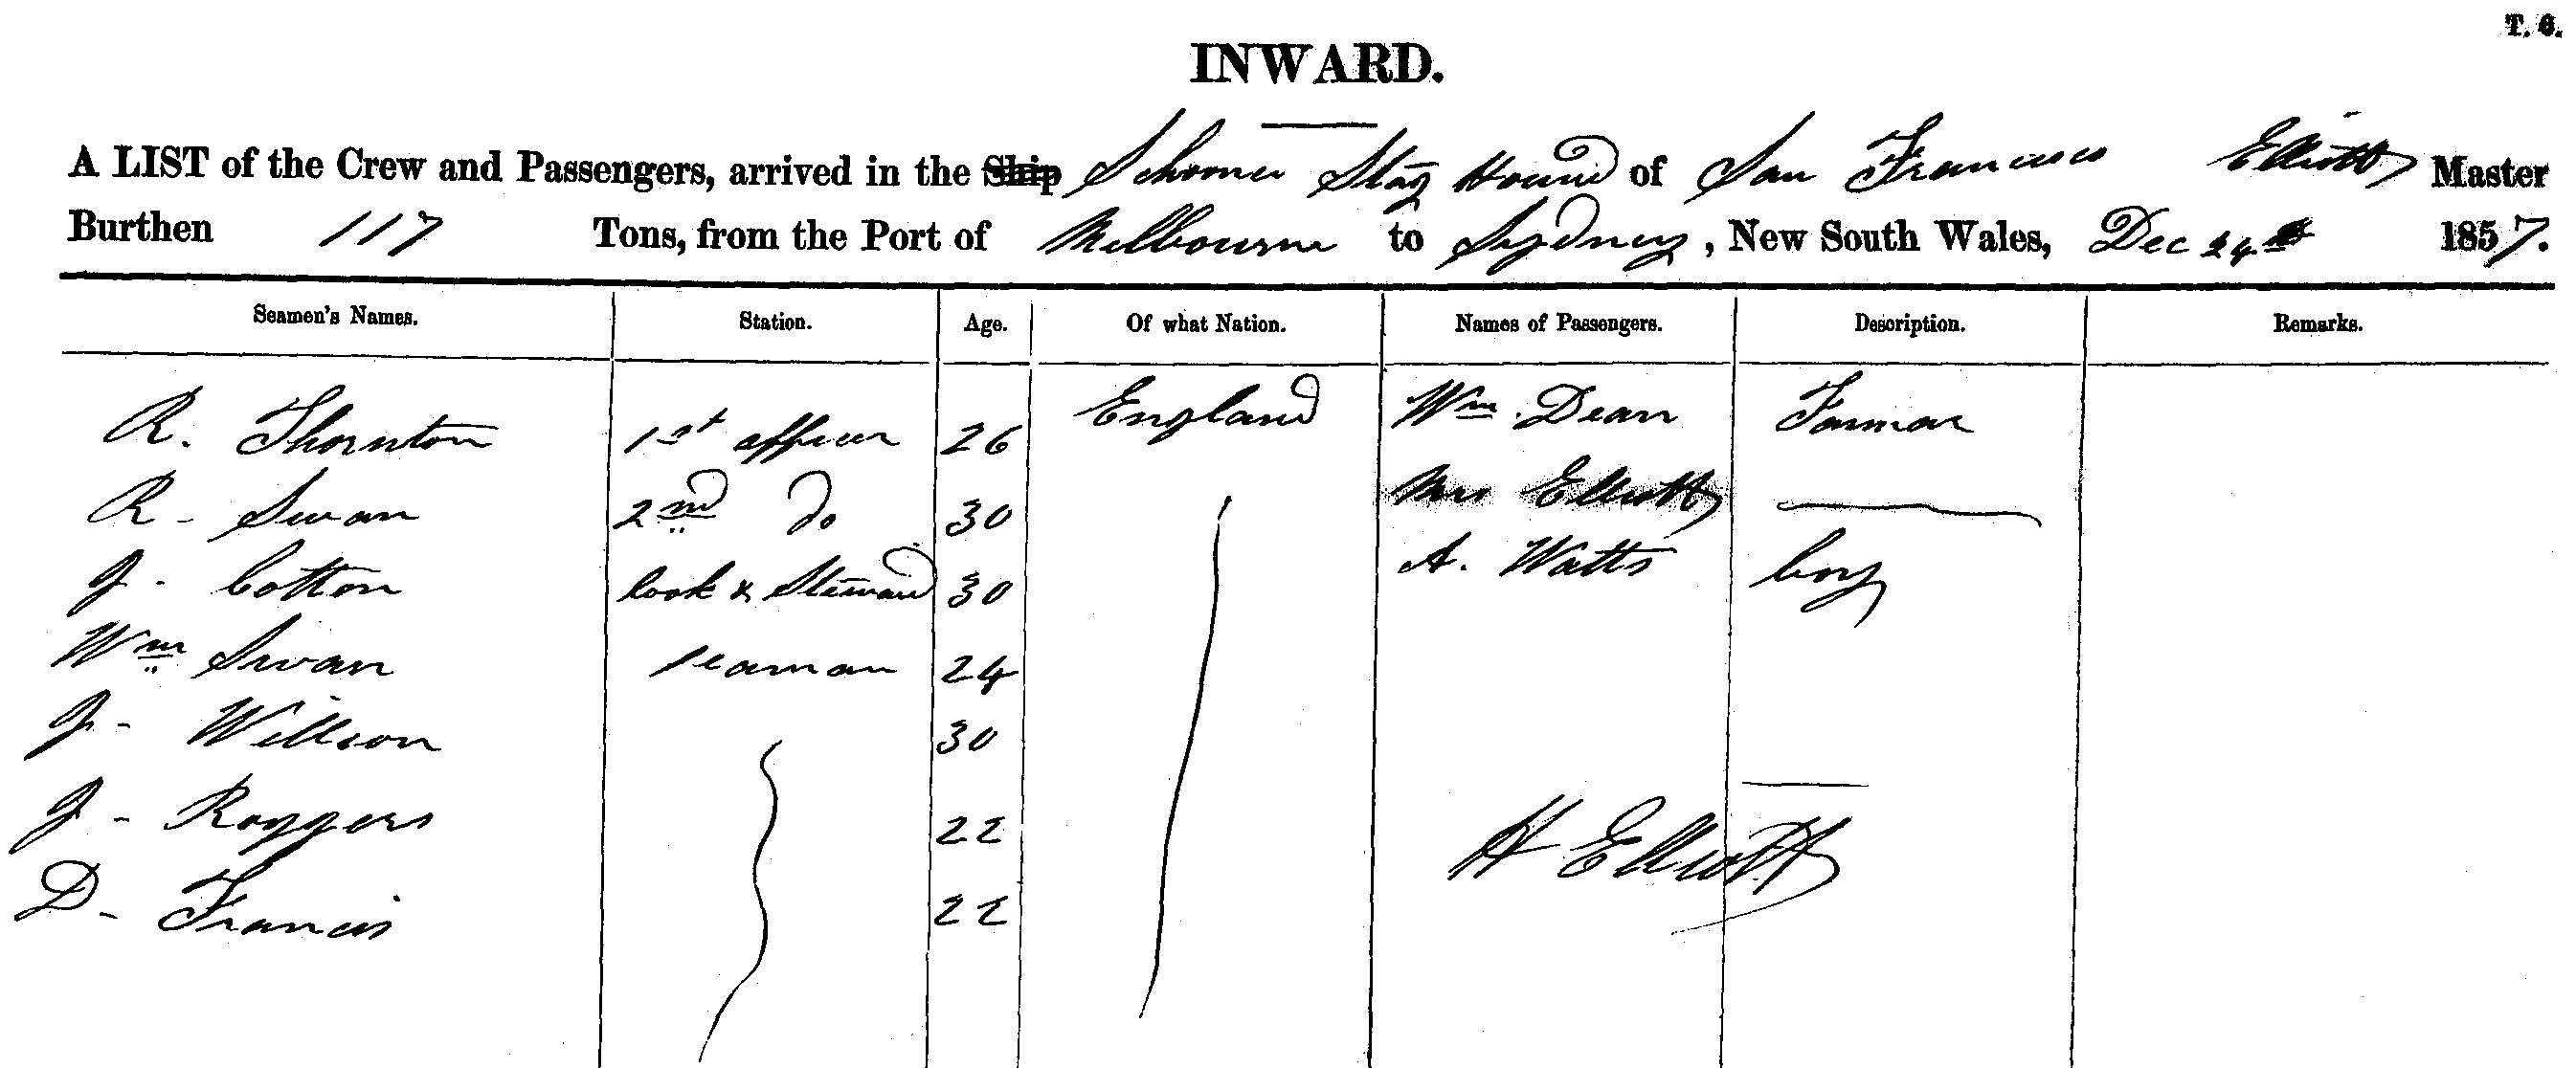 T. 6.
INWARD.
A LIST of the Crew and Passengers, arrived in the Ship Schooner Stag Hound of San Francisco Elliott Master
Burthen 117 Tons, from the Port of Melbourne to Sydney, New South Wales, Dec 24th 1857.
Seamen's Names. Station. Age. Of what Nation. Names of Passengers. Description. Remarks.
R. Thornton 1st officer 26 England Wm. Dean Farmar
R - Swan 2nd Do 30 Mrs Elliott
J - Cotton Cook & Steward 30 A. Watts boy
Wm Swan seaman 24
J - Willson 30
J - Roggers 22
H Elliott
D - Francis 22